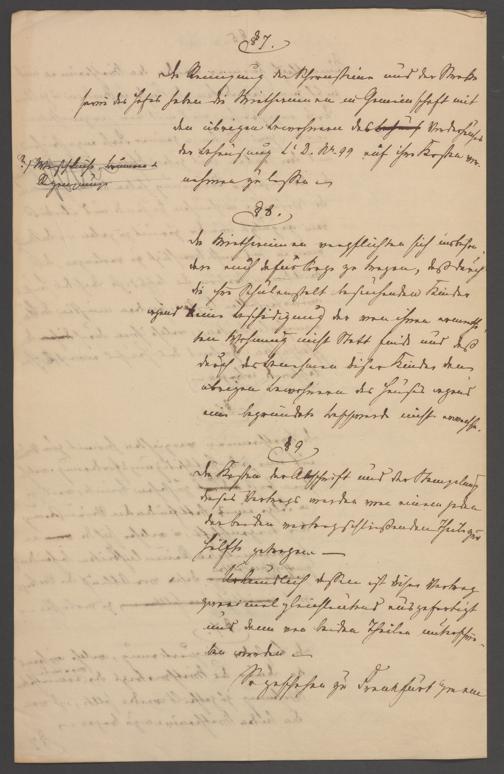 § 7.
Die Reinigung der Schornsteine und der Straße
sowie des Hofes haben die Mietherinnen in Gemeinschaft mit
den übrigen Bewohnern des Behaus Vorderhauses
der Behausung Lit. D. Nr. 99 auf ihre Kosten vor-
nehmen zu lassen.
§ 8.
Die Mietherinnen verpflichten sich insbeson-
dere auch dafür Sorge zu tragen, daß durch
die ihre Schulanstalt besuchenden Kinder
irgend keine Beschädigung der von ihnen ermiethe-
ten Wohnung nicht Statt finde und daß
durch das Benehmen dieser Kinder den
übrigen Bewohnern des Hauses irgend
eine begründete Beschwerde nicht erwachse.
§ 9
Die Kosten der Abschrift und der Stempelung
dieses Vertrags werden von einem jeden
der beiden vertragschließenden Theile zur
Hälfte getragen —
Urkundlich dessen ist dieser Vertrag
zwei mal gleichlautend ausgefertigt
und dann von beiden Theilen unterschrie-
ben worden —
So geschehen zu Frankfurt am